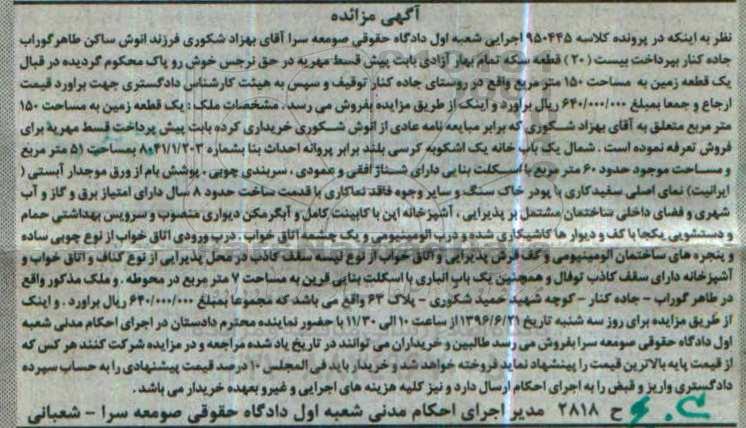 آگهی مزائده
نظر به اینکه در پرونده کلاسه ۹۵۰۴۴۵ اجرایی شعبه اول دادگاه حقوقی صومعه سرا آقای بهزاد شکوری فرزند انوش ساکن طاهرگوراب
جاده کنار بپرداخت بیست (۲۰) قطعه سکه تمام بهار آزادی بابت پیش قسط مهریه در حق نرجس خوش رو پاک محکوم گردیده در قبال
یک قطعه زمین به مساحت ۱۵۰ متر مربع واقع در روستای جاده کنار توقیف و سپس به هیئت کارشناس دادگستری جهت برآورد قیمت
ارجاع و جمعا بمبلغ ۶۴۰/۰۰۰/۰۰۰ ریال برآورد و اینک از طریق مزایده بفروش می رسد . مشخصات ملک : یک قطعه زمین به مساحت ۱۵۰
متر مربع متعلق به آقای بهزاد شکوری که برابر مبایعه نامه عادی از انوش شکوری خریداری کرده بابت پیش پرداخت قسط مهریه برای
فروش تعرفه نموده است . شمال یک باب خانه یک اشکوبه کرسی بلند برابر پروانه احداث بنا بشماره ۸۰۴۱/۱/۲۰۳ بمساحت (۵۱ متر مربع
و مساحت موجود حدود ۶۰ متر مربع با اسکلت بنایی دارای شناژ افقی و عمودی ، سربندی چوبی ، پوشش بام از ورق موجدار آبستی (
ایرانیت) نمای اصلی سفیدکاری با پودر خاک سنگ و سایر وجوه فاقد نماکاری با قدمت ساخت حدود ۸ سال دارای امتیاز برق و گاز و آب
شهری و فضای داخلی ساختمان مشتمل بر پذیرایی ، آشپزخانه اپن با کابینت کامل و آبگرمکن دیواری منصوب و سرویس بهداشتی حمام
و دستشویی یکجا با کف و دیوار ها کاشیکاری شده و درب آلومینیومی و یک چشمه اتاق خواب ، درب ورودی اتاق خواب از نوع چوبی ساده
و پنجره های ساختمان آلومینیومی و کف فرش پذیرایی و اتاق خواب از نوع لیسه سقف کاذب در محل پذیرایی از نوع کناف و اتاق خواب و
آشپزخانه دارای سقف کاذب توفال و همچنین یک باب انباری با اسکلت بنایی قرین به مساحت ۷ متر مربع در محوطه . و ملک مذکور واقع
در طاهر گوراب - جاده کنار - کوچه شهید حمید شکوری - پلاک ۶۳ واقع می باشد که مجموعا بمبلغ ۶۴۰/۰۰۰/۰۰۰ ریال برآورد . و اینک
از طریق مزایده برای روز سه شنبه تاریخ ۱۳۹۶/۶/۲۱ از ساعت ۱۰ الی ۱۱/۳۰ با حضور نماینده محترم دادستان در اجرای احکام مدنی شعبه
اول دادگاه حقوقی صومعه سرا بفروش می رسد طالبین و خریداران می توانند در تاریخ یاد شده مراجعه و در مزایده شرکت کنند هر کس که
از قیمت پایه بالاترین قیمت را پیشنهاد نماید فروخته خواهد شد و خریدار باید فی المجلس ۱۰ درصد قیمت پیشنهادی را به حساب سپرده
دادگستری واریز و قبض را به اجرای احکام ارسال دارد و نیز کلیه هزینه های اجرایی و غیرو بعهده خریدار می باشد .
ح ۲۸۱۸ مدیر اجرای احکام مدنی شعبه اول دادگاه حقوقی صومعه سرا - شعبانی